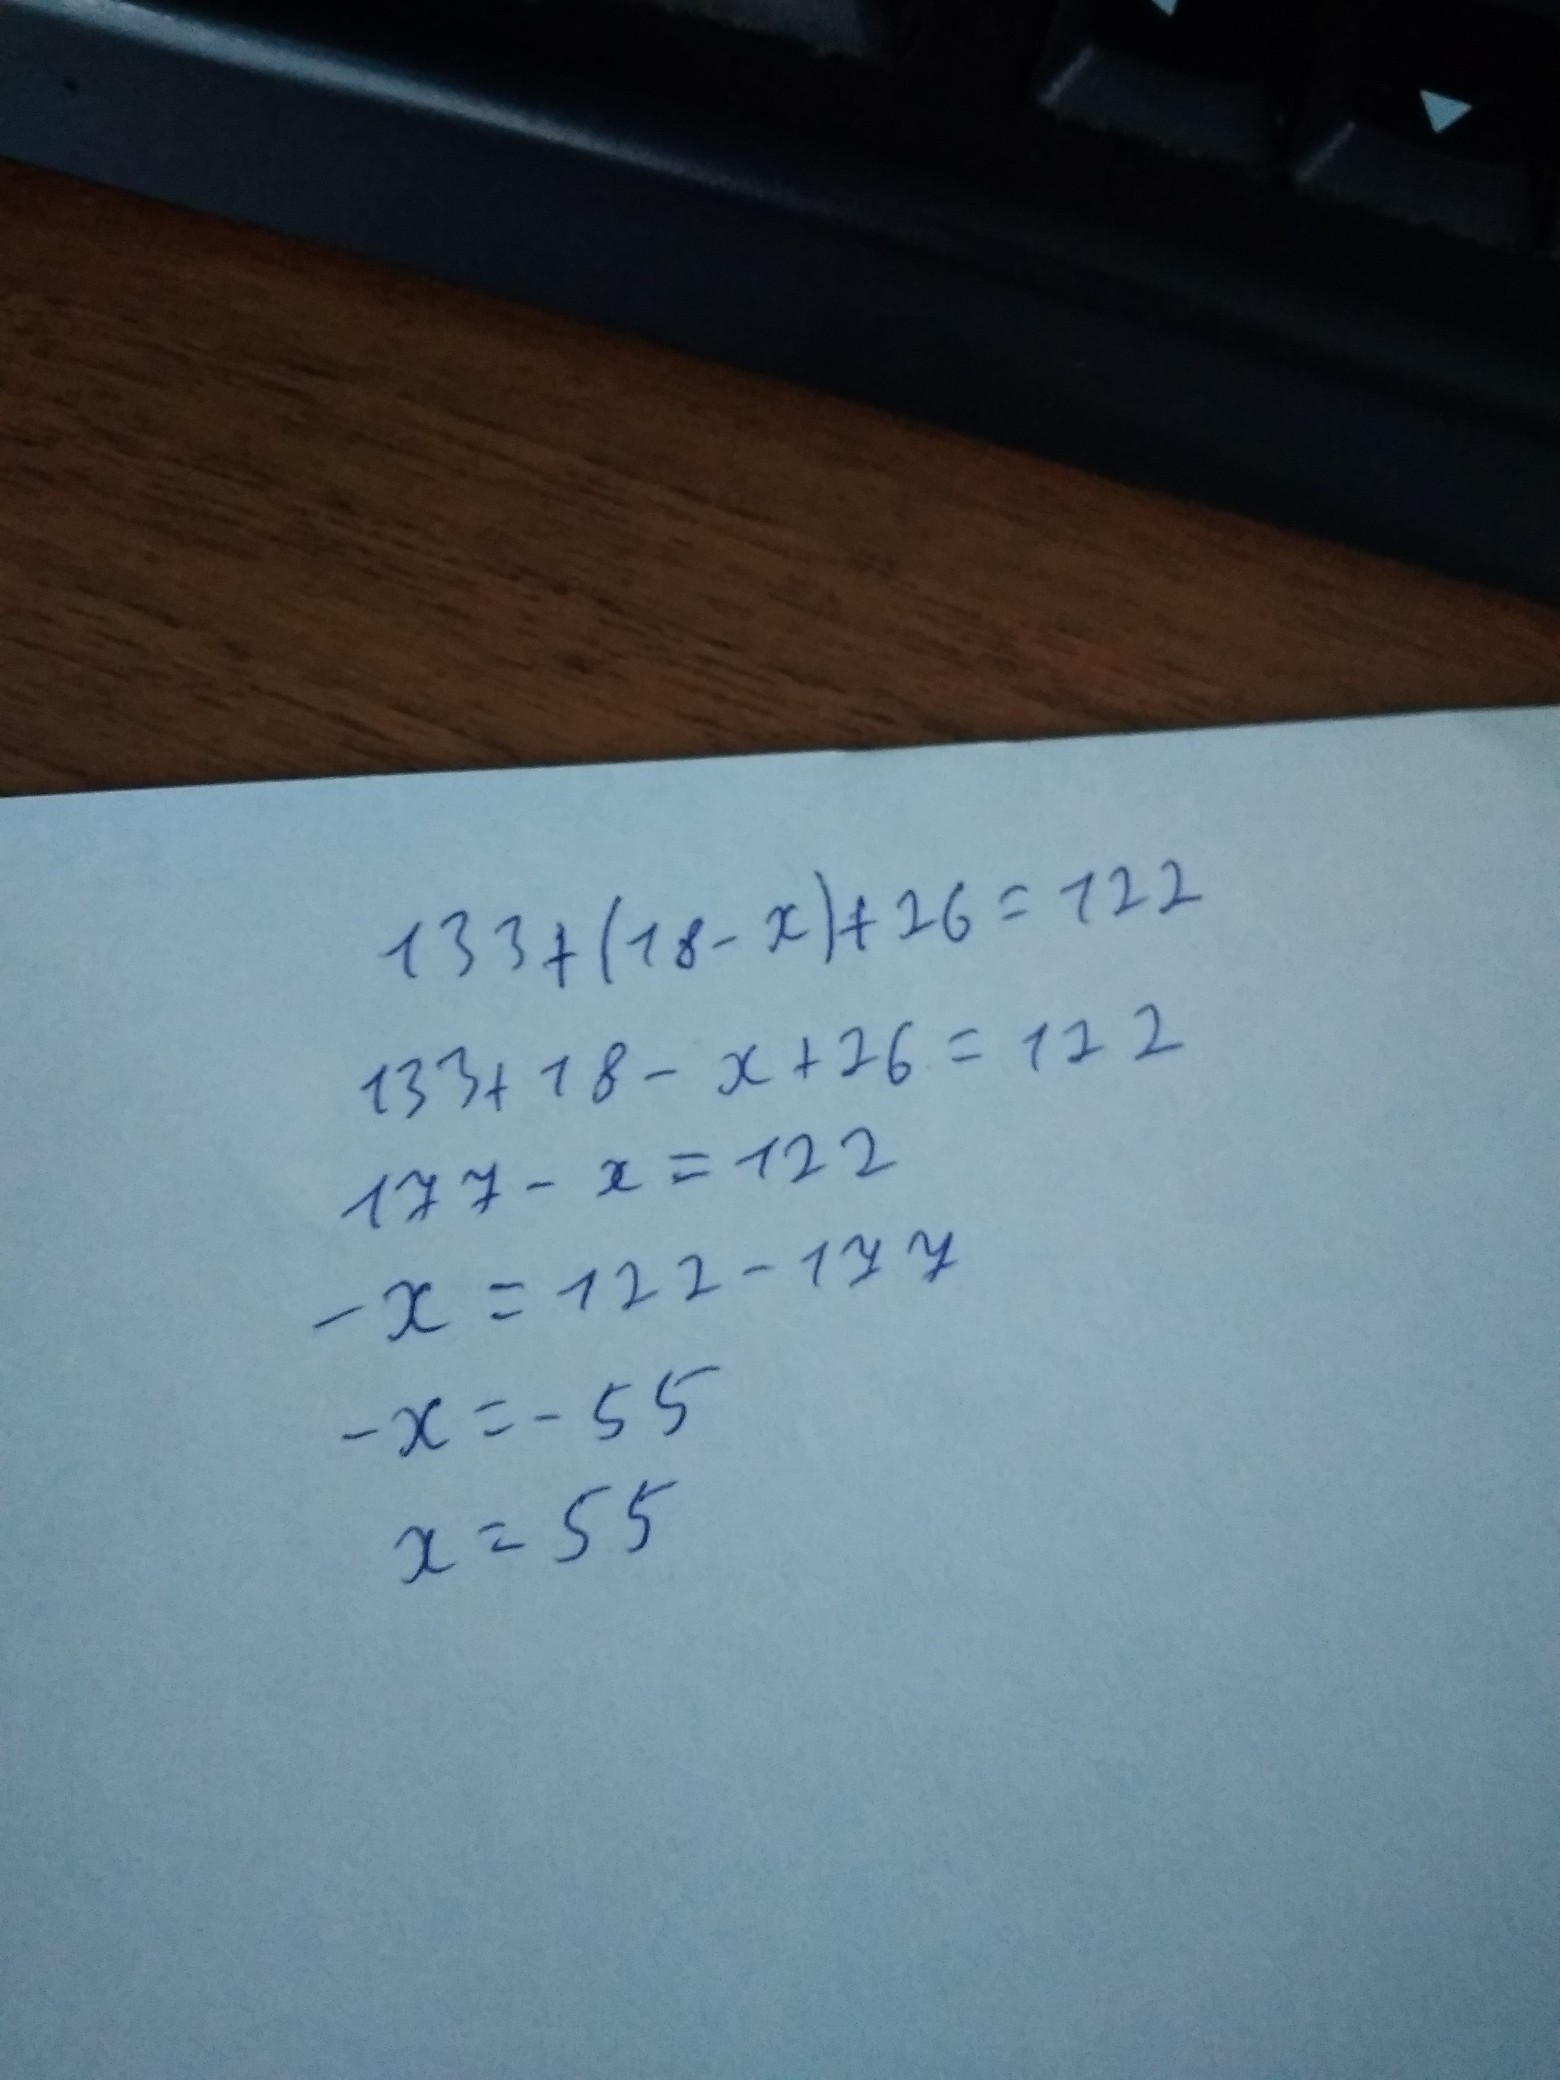 133+(18-x)+26=122
133+18-x+26=122
177-x=122
-x=122-177
-x=-55
x=55